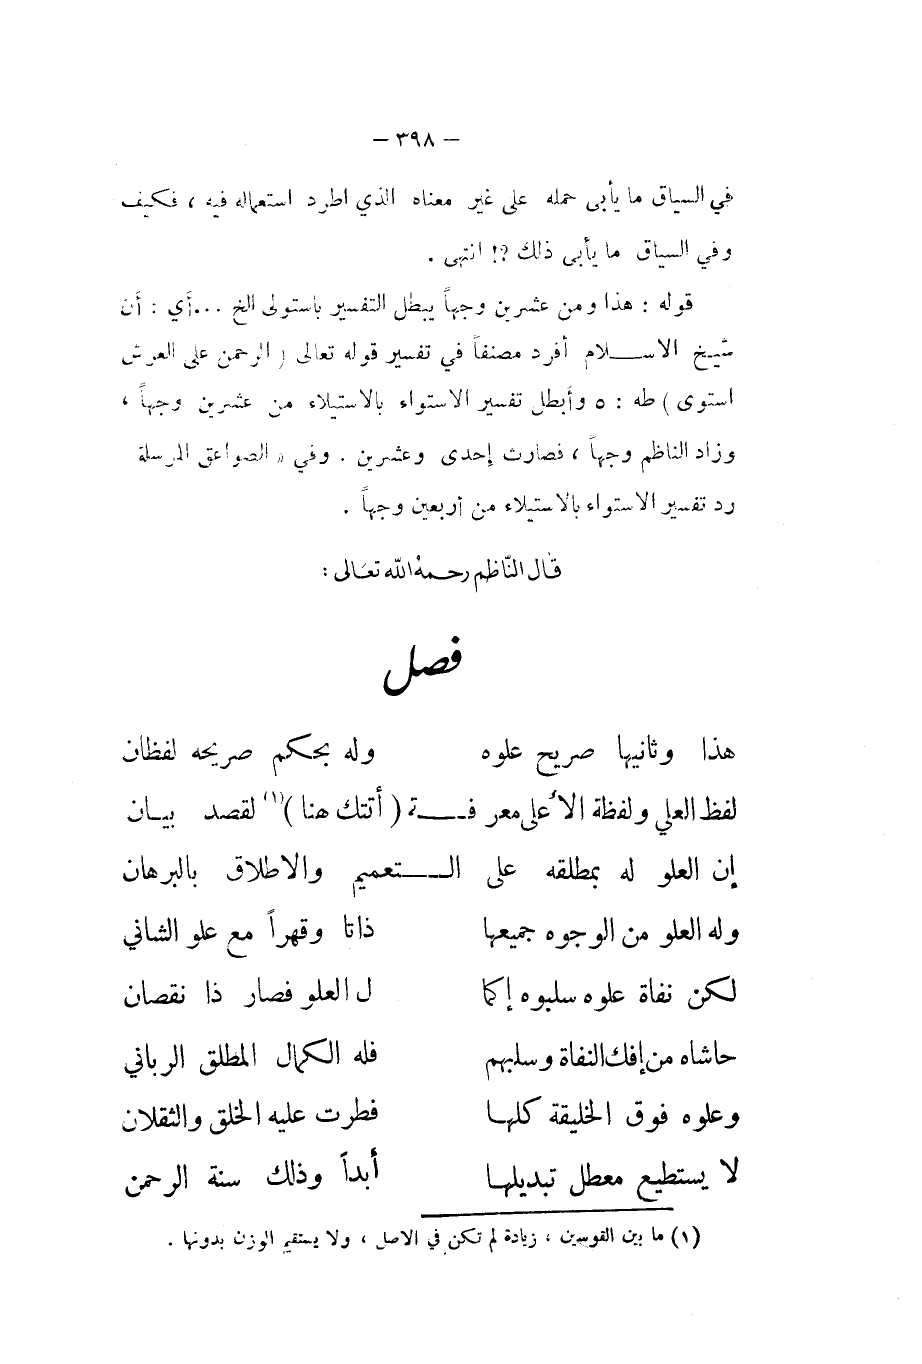 — ٣٩٨ —
في السياق ما يأبى حمله على غير معناه الذي اطرد استعماله فيه ، فكيف
وفي السياق ما يأبى ذلك ؟! انتهى .
قوله : هذا ومن عشرين وجهاً يبطل التفسير باستولى الخ ...أي : أن
شيخ الاســلام أفرد مصنفاً في تفسير قوله تعالى ( الرحمن على العرش
استوى ) طه : ٥ وأبطل تفسير الاستواء بالاستيلاء من عشرين وجهاً ،
وزاد الناظم وجهاً ، فصارت إحدى وعشرين . وفي « الصواعق المرسلة
رد تفسير الاستواء بالاستيلاء من أربعين وجهاً .
قال النّاظم رحمهُ اللّه تعَالى :
فصل
هذا وثانيها صريح علوه وله بحكم صريحه لفظان
لفظ العلي ولفظة الأعلى معر فــة ( أتتك هنا )(١) لقصد بيـان
إن العلو له بمطلقه على الــتعميم والاطلاق بالبرهان
وله العلو من الوجوه جميعها ذاتا وقهراً مع علو الشاني
لكن نفاة علوه سلبوه إكما ل العلو فصار ذا نقصان
حاشاه من إفك النفاة وسلبهم فله الكمال المطلق الرباني
وعلوه فوق الخليقة كلهـا فطرت عليه الخلق والثقلان
لا يستطيع معطل تبديلهـا أبداً وذلك سنة الرحمن
(١) ما بين القوسين ، زيادة لم تكن في الاصل ، ولا يستقيم الوزن بدونها .